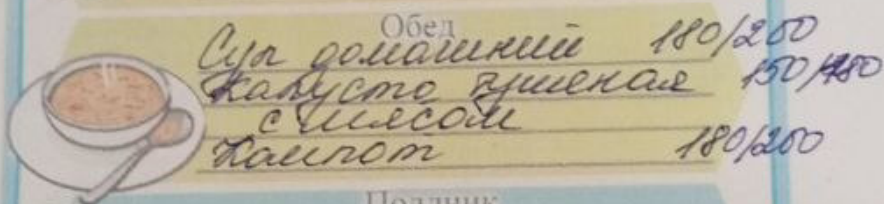 Обед
Суп домашний 180/200
Капуста тушеная 150/180
с мясом
Компот 180/200
Полдник